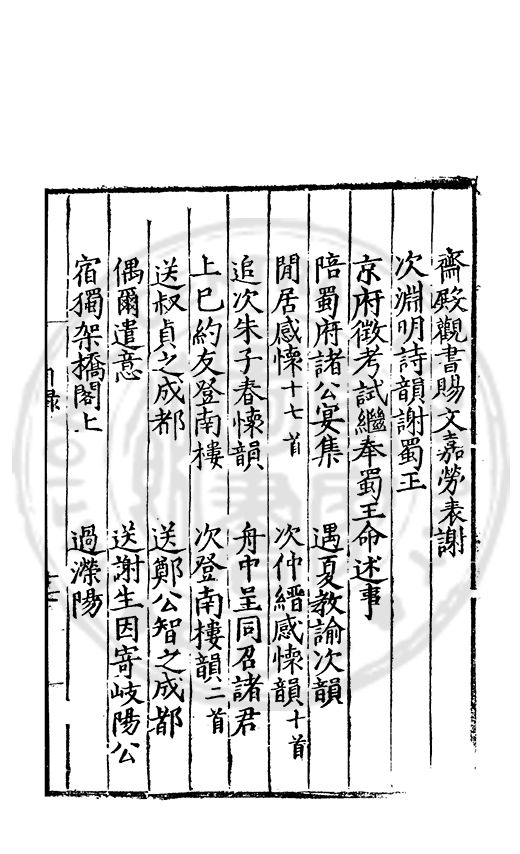 齋殿觀書賜文嘉勞表謝
次淵明詩韻謝蜀王
京府徵考試繼奉蜀王命述事
陪蜀府諸公宴集　遇夏教諭次韻
閒居感懷十七首　次仲縉感懷韻十首
追次朱子春懷韻　舟中呈同召諸君
上巳約友登南樓　次登南樓韻二首
送叔貞之成都　送鄭公智之成都
偶爾遣意　送謝生因寄岐陽公
宿獨架橋閣上　過濼陽
目錄